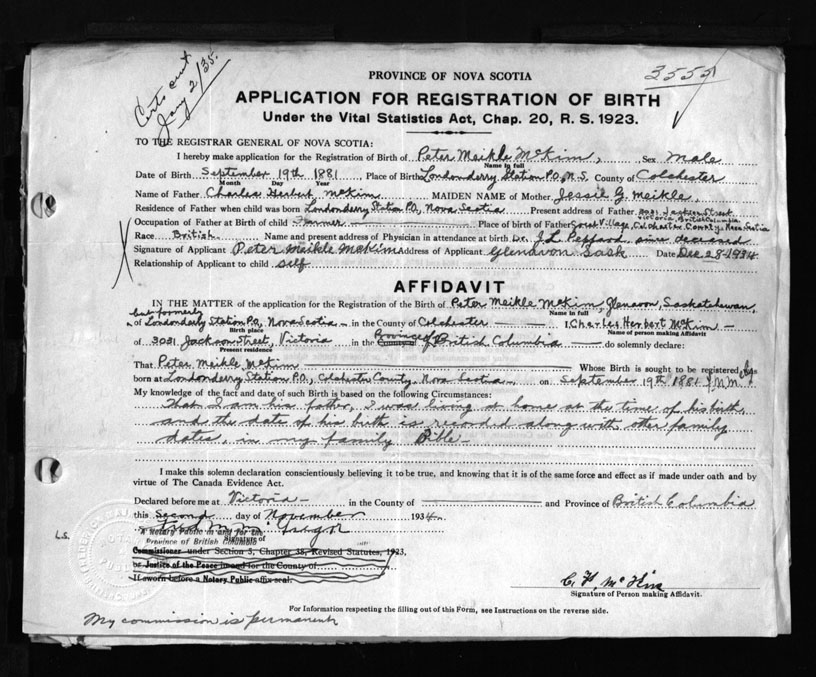 Certs sent
Jany 2/35
3555
PROVINCE OF NOVA SCOTIA
APPLICATION FOR REGISTRATION OF BIRTH
Under the Vital Statistics Act, Chap. 20, R. S. 1923.
TO THE REGISTRAR GENERAL OF NOVA SCOTIA:
I hereby make application for the Registration of Birth of Peter Meikle McKim, Sex male
Name in full
Date of Birth September 19th 1881 Place of Birth Londonderry Station P.O., N.S. County of Colchester
Month Day Year
Name of Father Charles Herbert McKim MAIDEN NAME of Mother Jessie G Meikle
Residence of Father when child was born Londonderry Station P.O., Nova Scotia Present address of Father 3021 Jackson Street Victoria, British Columbia
Occupation of Father at Birth of child Farmer Place of birth of Father Great Village, Colchester County, Nova Scotia
Race British Name and present address of Physician in attendance at birth Dr. J L Peppard, since deceased
Signature of Applicant Peter Meikle McKim Address of Applicant Glenavon Sask Date Dec 28-1934
Relationship of Applicant to child self
AFFIDAVIT
IN THE MATTER of the application for the Registration of the Birth of Peter Meikle McKim, Glenavon, Saskatchewan,
Name in full
but formerly
of Londonderry Station P.O., Nova Scotia in the County of Colchester I, Charles Herbert McKim
Birth place Name of person making Affidavit
of 3021 Jackson Street, Victoria in the County Province of British Columbia do solemnly declare:
Present residence
That Peter Meikle McKim Whose Birth is sought to be registered, was
born at Londonderry Station P.O., Colchester County, Nova Scotia on September 19th 1881
My knowledge of the fact and date of such Birth is based on the following Circumstances:
That I am his father, I was living at home at the time of his birth,
and the date of his birth is recorded along with other family
dates, in my family Bible
I make this solemn declaration conscientiously believing it to be true, and knowing that it is of the same force and effect as if made under oath and by
virtue of The Canada Evidence Act.
Declared before me at Victoria in the County of and Province of British Columbia
this Second day of November 1934
A Notary Public in and for the
Province of British Columbia
Signature of
Commissioner under Section 3, Chapter 38, Revised Statutes, 1923,
or Justice of the Peace in and for the County of
If sworn before a Notary Public affix seal.
L.S.
C H McKim
Signature of Person making Affidavit.
For Information respecting the filling out of this Form, see Instructions on the reverse side.
My commission is permanent